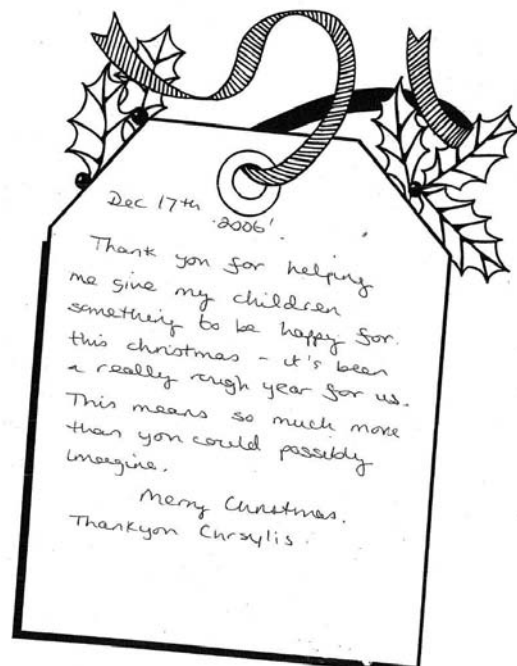 Dec 17th
2006'.
Thank you for helping
me give my children
something to be happy for.
this christmas - it's been
a really rough year for us.
This means so much more
than you could possibly
imagine.
Merry Christmas.
Thankyou Chrsylis.